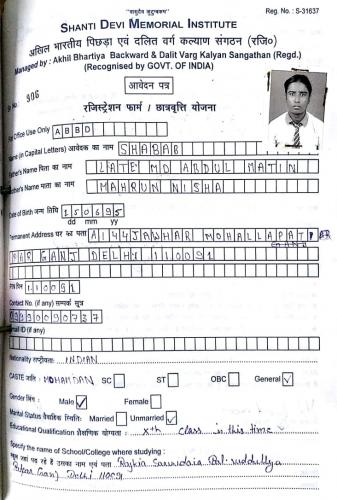 "वसुधैव कुटुम्बकम"
Reg. No. : S-31637
SHANTI DEVI MEMORIAL INSTITUTE
अखिल भारतीय पिछड़ा एवं दलित वर्ग कल्याण संगठन (रजि०)
Managed by : Akhil Bhartiya Backward & Dalit Varg Kalyan Sangathan (Regd.)
(Recognised by GOVT. OF INDIA)
आवेदन पत्र
Sr No. 906
रजिस्ट्रेशन फार्म / छात्रवृत्ति योजना
For Office Use Only A B B D
Name (in Capital Letters) आवेदक का नाम SHABAB
Father's Name पिता का नाम LATE MD ABDUL MATIN
Name पिता का नाम MAHRUN NISHA
Date of Birth जन्म तिथि 150695
dd mm yy
Permanent Address घर का पता A144 JAWHAR MOHALLA PATPAR
GANJ DELHI 110091
PIN पिन 110091
Contact No. (if any) सम्पर्क सूत्र
Email ID (if any)
Nationality राष्ट्रीयता: INDIAN
CASTE जाति : MOHAMDAN SC ST OBC General ✓
Gender लिंग : Male ✓ Female
Marital Status वैवाहिक स्थिति: Married Unmarried ✓
Educational Qualification शैक्षणिक योग्यता : xth class in this time
Specify the name of School/College where studying :
स्कूल जहां पढ़ रहे हैं उसका नाम एवं पता Rajkia Sarvodaya Bal
Delhi 110091